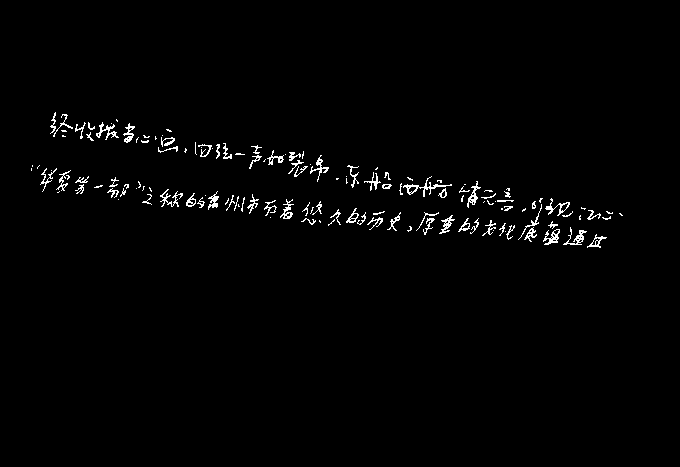 终收拨当心画，四弦一声如裂帛。东船西舫悄无言，唯见江心
“华夏第一都”之称的禹州市有着悠久的历史，厚重的文化底蕴通过